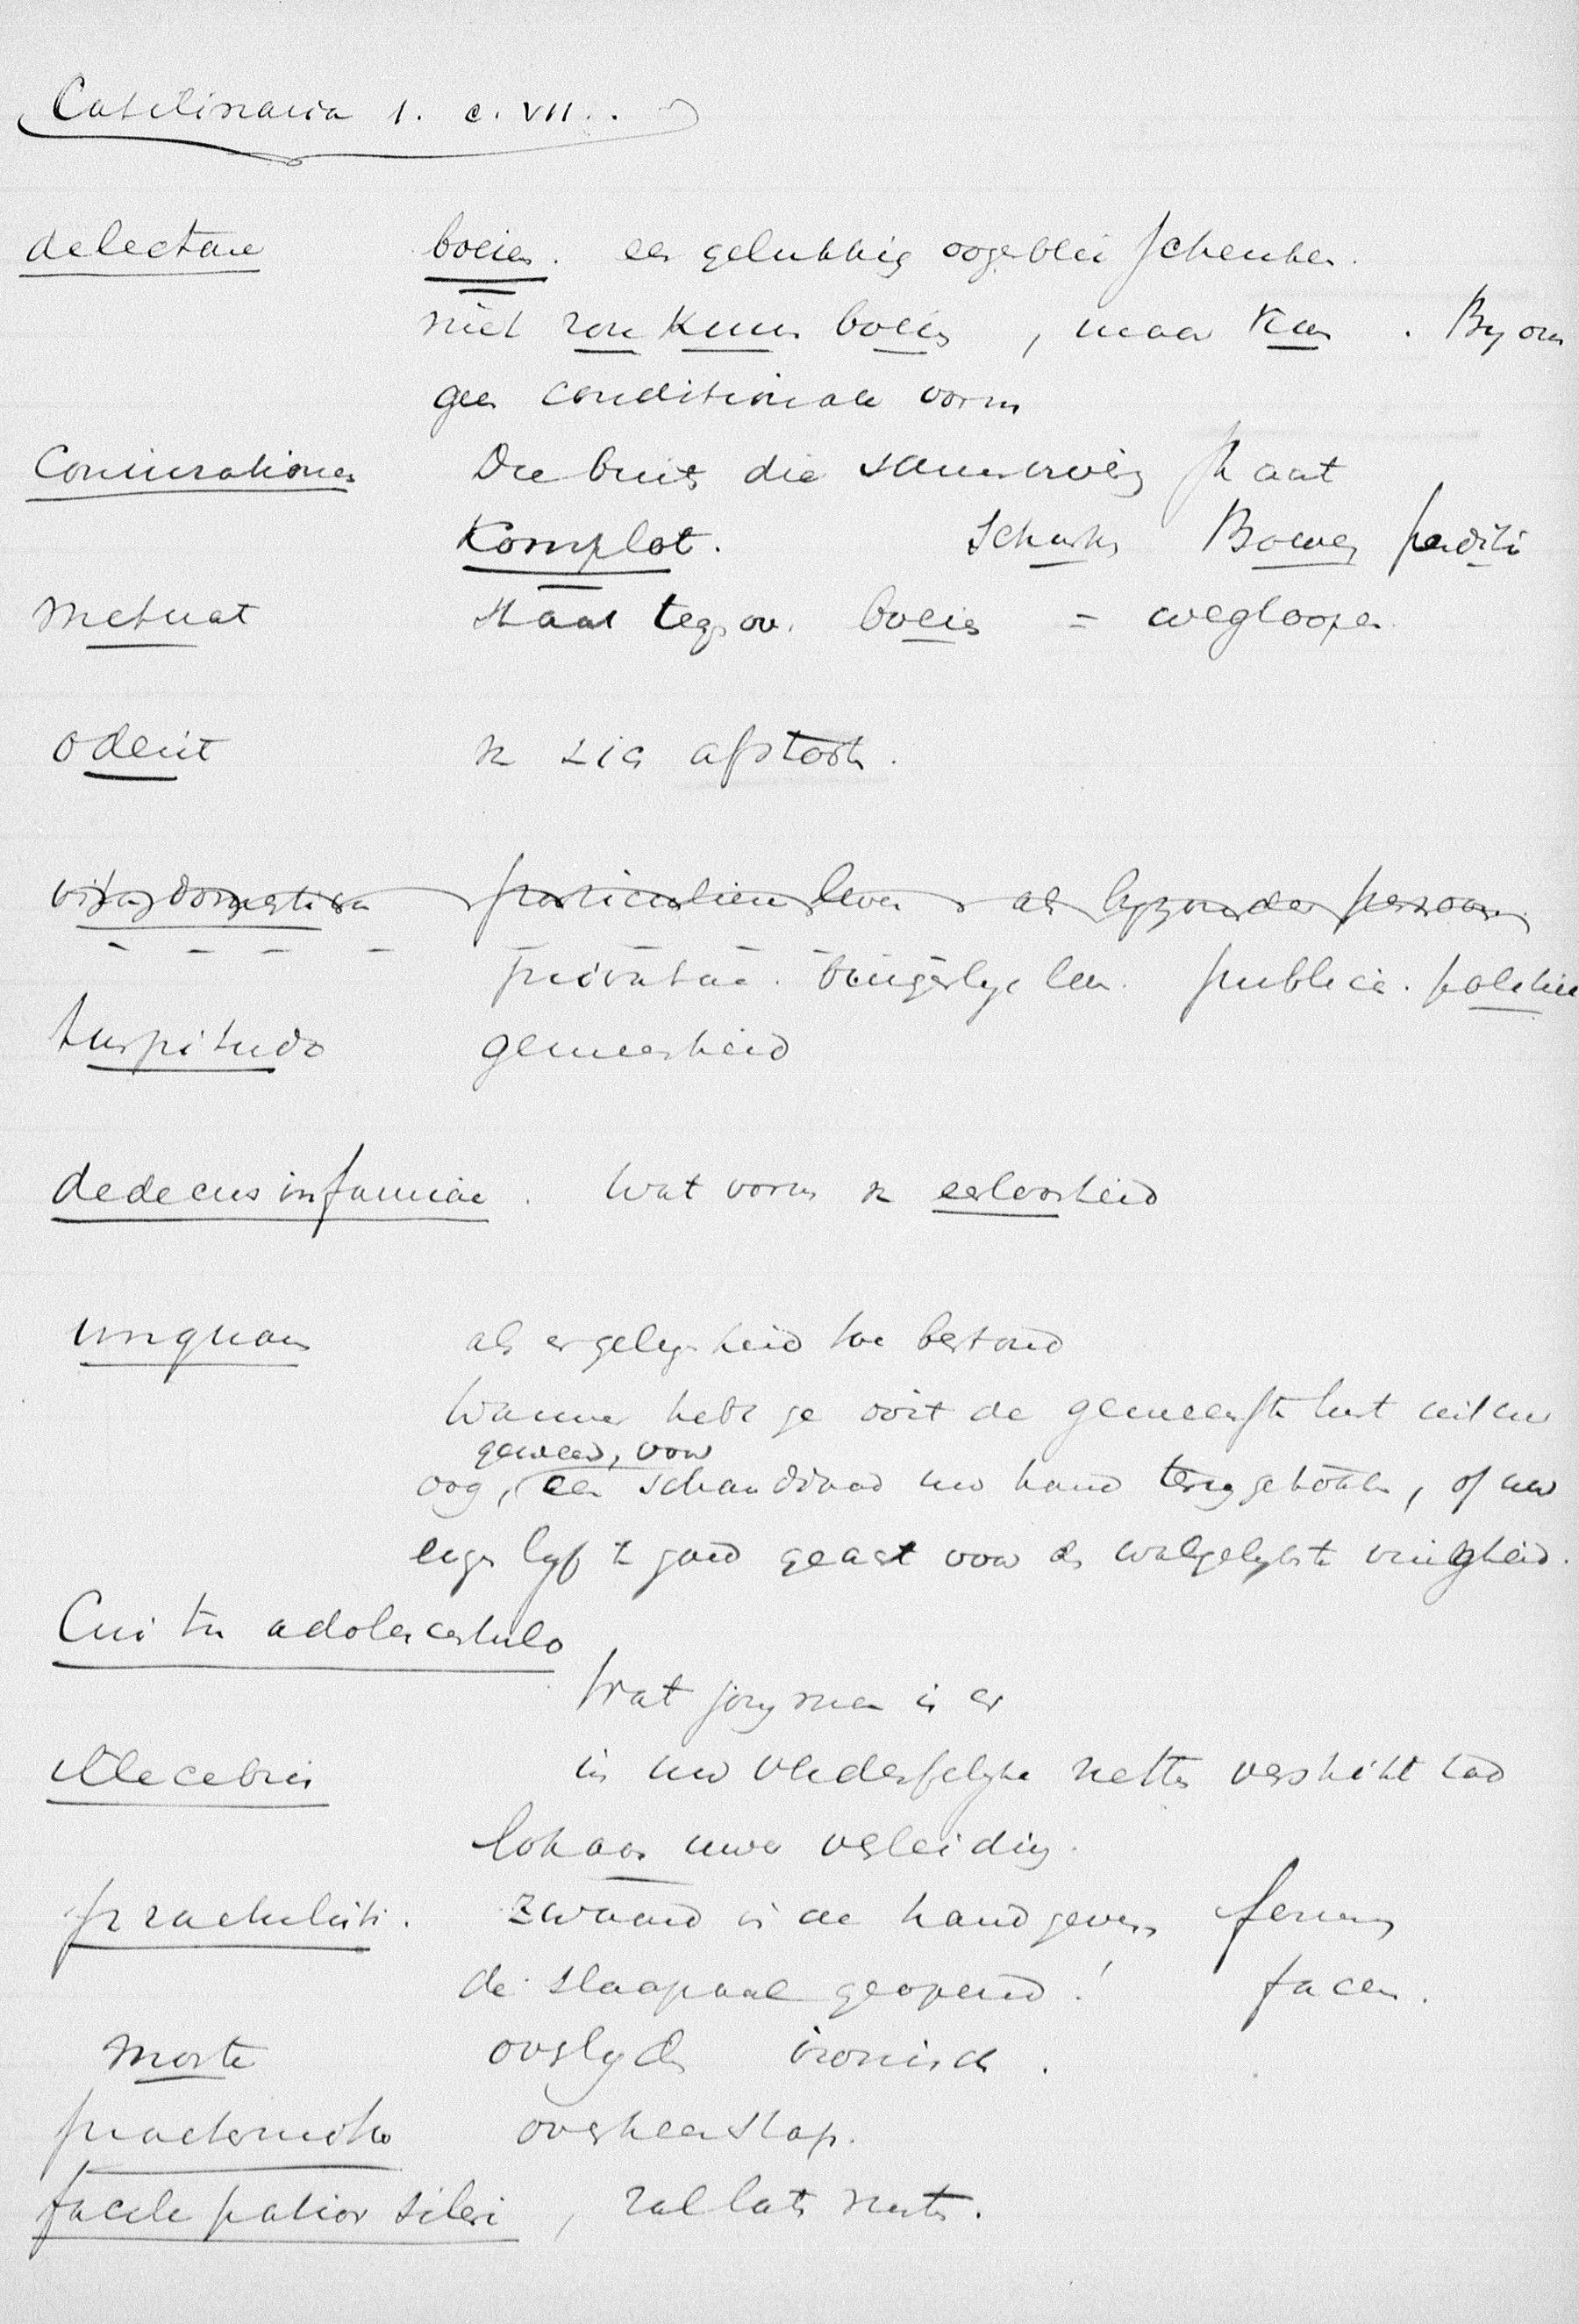 Catilinaria 1. c. VII..
delectare boeien. een gelukkig oogenblik schenken.
niet zou kunnen boeien, maar kan. By ons
geen conditionale vorm
Coniurationem Die buiten die samenzwering staat
Komplot. Schurken Boeven perditi
metuat staat tegenov. boeien = wegloopen.
oderit zich afstoot.
vitae domesticae particulier leven als byzonder persoon
privatae. burgerlyk leven. publicis. politiek
turpitudo gemeenheid
dedecus infamiae. Wat vorm eerloosheid
unquam als er gelegenheid toe bestond
Wanneer hebt ge ooit de gemeenste lust uit uw
geweerd, voor
oog, een schanddaad uw hand teruggehouden, of uw
eigen lyf te goed geacht voor de walgelykste vuiligheid.
Cui tu adolescentulo
Wat jongman is er
illecebris in uw verderfelyke netten verstrikt had
lokaas uwer verleiding.
praetulisti. zwaard in de hand geven ferrum
de slaapzaal geopend! facem.
morte overlyden ironisch.
praetermitto overheen stap.
facile patior sileri, zal laten rusten.